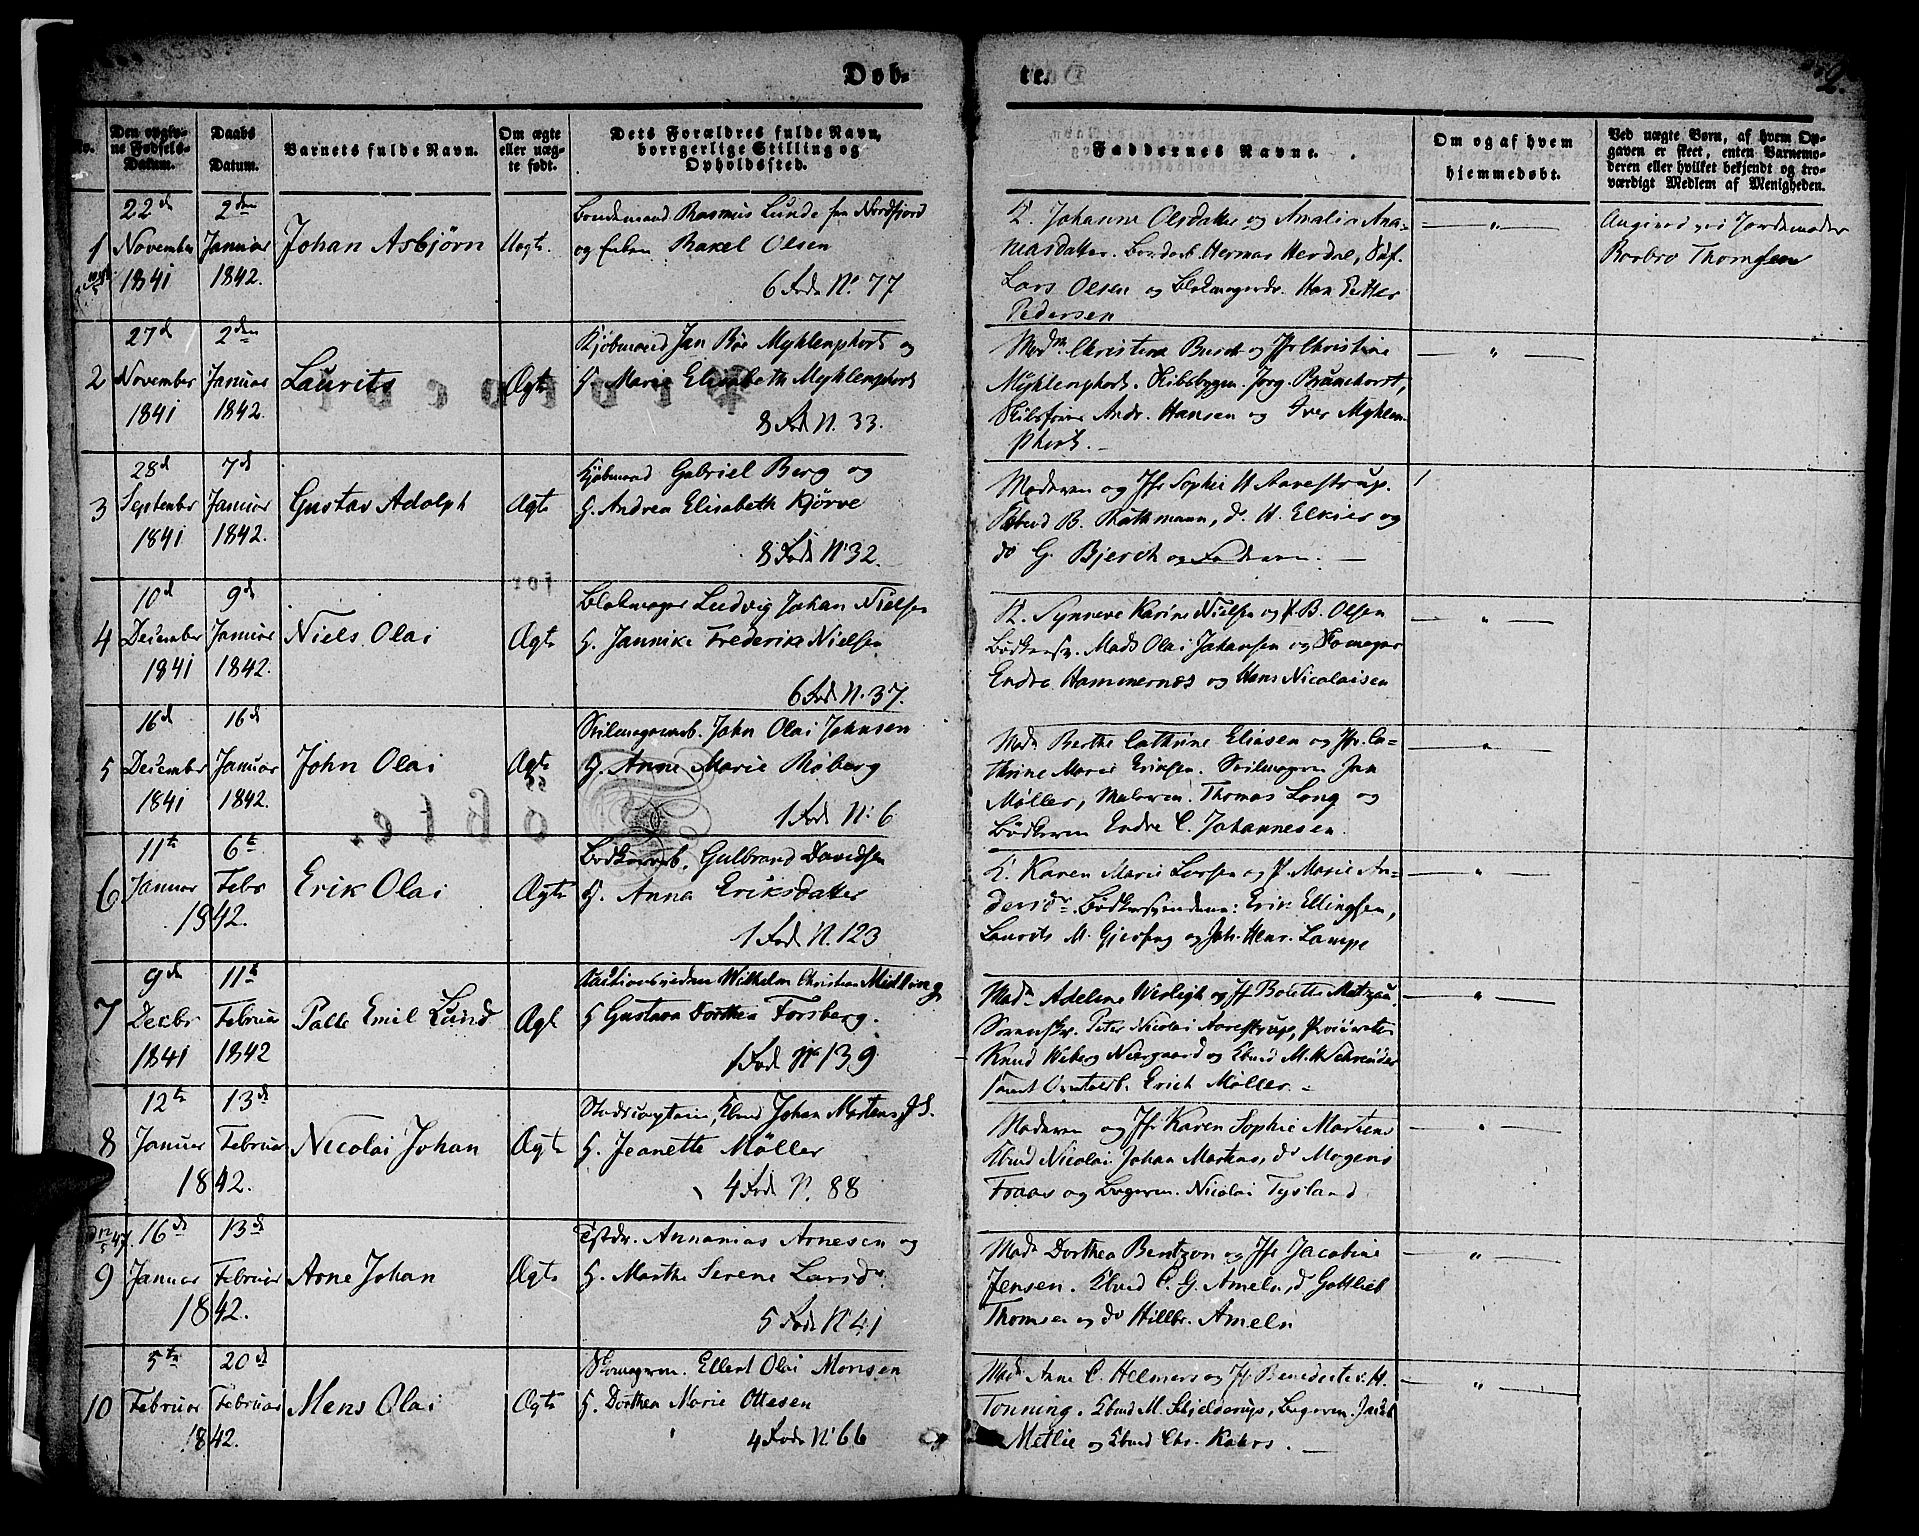 Døb- te.
2.
No.
Den opgiv-
ne Fødsels-
Datum.
Daabs
Datum.
Barnets fulde Navn.
Om ægte
eller uæg-
te født.
Dets Forældres fulde Navn,
borrgerlige Stilling og
Opholdssted.
Faddernes Navne.
Om og af hvem
hjemmedøbt.
Ved uægte Børn, af hvem Op-
gaven er skeet, enten Barnemo-
deren eller hvilket bekjendt og tro-
værdigt Medlem af Menigheden.
1
22d
November
1841
2den
Januar
1842.
Johan Asbjørn
Uegte
Bondemand Rasmus Lunde fra Nordfjord
og Rakel Olsen
6 Fode No. 77
K. Johanne Olsdatter og Amalia Ana-
niasdatter. Herman Herdal,
Lars Olsen og Blokmagerdr. Han Petter
Pedersen
Angivet ved Jordemoder
Barbro Thomsen
2
27d
November
1841
2den
Januar
1842.
Laurits
Ægte
Kjøbmand Jan Bøe Myhlenphort og
H. Marie Elisabeth Myhlenphort
8 Fode N. 33.
Madm Christine Busch og Jfr Christine
Myhlenphort. Skibsbygm. Jørg. Brunchorst,
Skibsfører Andr. Hansen og Iver Myhlen-
phort.
3
28d
September
1841
7d
Januar
1842.
Gustav Adolph
Ægte
Kjøbmand Gabriel Berg og
H. Andrea Elisabeth Kjørve
8 Fode N. 32.
Moderen og Jfr Sophie H Aarestrup.
Kbmd B. Rathmann, do H. Elkier og
do G. Bjerck og Faderen.
4
10d
December
1841
9d
Januar
1842.
Niels Olai
Ægte
Blokmager Ludvig Johan Nielsen
H. Jannike Frederikke Nielsen
6 Fode N. 37.
K. Synneve Karine Nielsen og P. B. Olsen
Bødkersv. Mads Olai Johansen og Skomager
Endre Hammernæs og Hans Nicolaisen
5
16d
December
1841
16d
Januar
1842.
John Olai
Ægte
Seilmagersvb. John Olai Johnsen
H. Anne Marie Røberg
1 Fode N. 6
Mad. Berthe Cathrine Eliasen og Jfr. Ca-
thrine Marie Eriksen. Seilmager Jan
Møller, Maleren Thomas Lang og
Bødkeren Endre C. Johannesen.
6
11te
Januar
1842.
6te
Febr
Erik Olai
Ægte
Bødkersvb. Gulbrand Davidsen
H. Anna Eriksdatter
1 Fode N. 123
K. Karen Marie Larsen og P. Marie An-
dersdr. Bødkersvendene: Erik Ellingsen,
Laurits M. Gjerfag og Joh. Henr. Lampe
7
9de
Decbr
1841
11te
Februar
1842
Palle Emil Lund
Ægt
Wilhelm Christian Midling
H Gustava Dorthea Forsberg.
1 Fode No 139
Mad. Adeline Wesligh og Jfr Bolette Matzau
Peter Nicolai Aarestrup,
Knud Wiberg Neergaard og Kbmd M. H Schreuder
samt Erich Møller.
8
12te
Januar
1842.
13d
Februar
Nicolai Johan
Ægte
Stadscaptain, Kbmd Johan Martens J. S.
H. Jeanette Møller
4 Fode N. 88
Moderen og Jfr Karen Sophie Martens
Kbmd Nicolai Johan Martens, do Mogens
Fraas og Bageren Nicolai Tysland
9
16d
Januar
1842.
13d
Februar
Arne Johan
Ægte
Annanias Arnesen og
H. Marthe Serene Larsdr
5 Fode N. 41
Mad. Dorthea Bentzon og Jfr Jacobine
Jensen. Kbmd C. G. Ameln, do Gottlieb
Thomsen og do Hillbr. Ameln
10
5te
Februar
1842.
20d
Februar
Mons Olai
Ægte
Skomagerm. Ellert Olai Monsen
H. Dorthea Marie Ottesen
4 Fode N. 66
Mad. Anne C. Helmers og Jfr Benedicte v. H.
Tonning. Kbmd M. Schjelderup, Bageren Jacob
Metlie og Kbmd Chr. Kahrs.